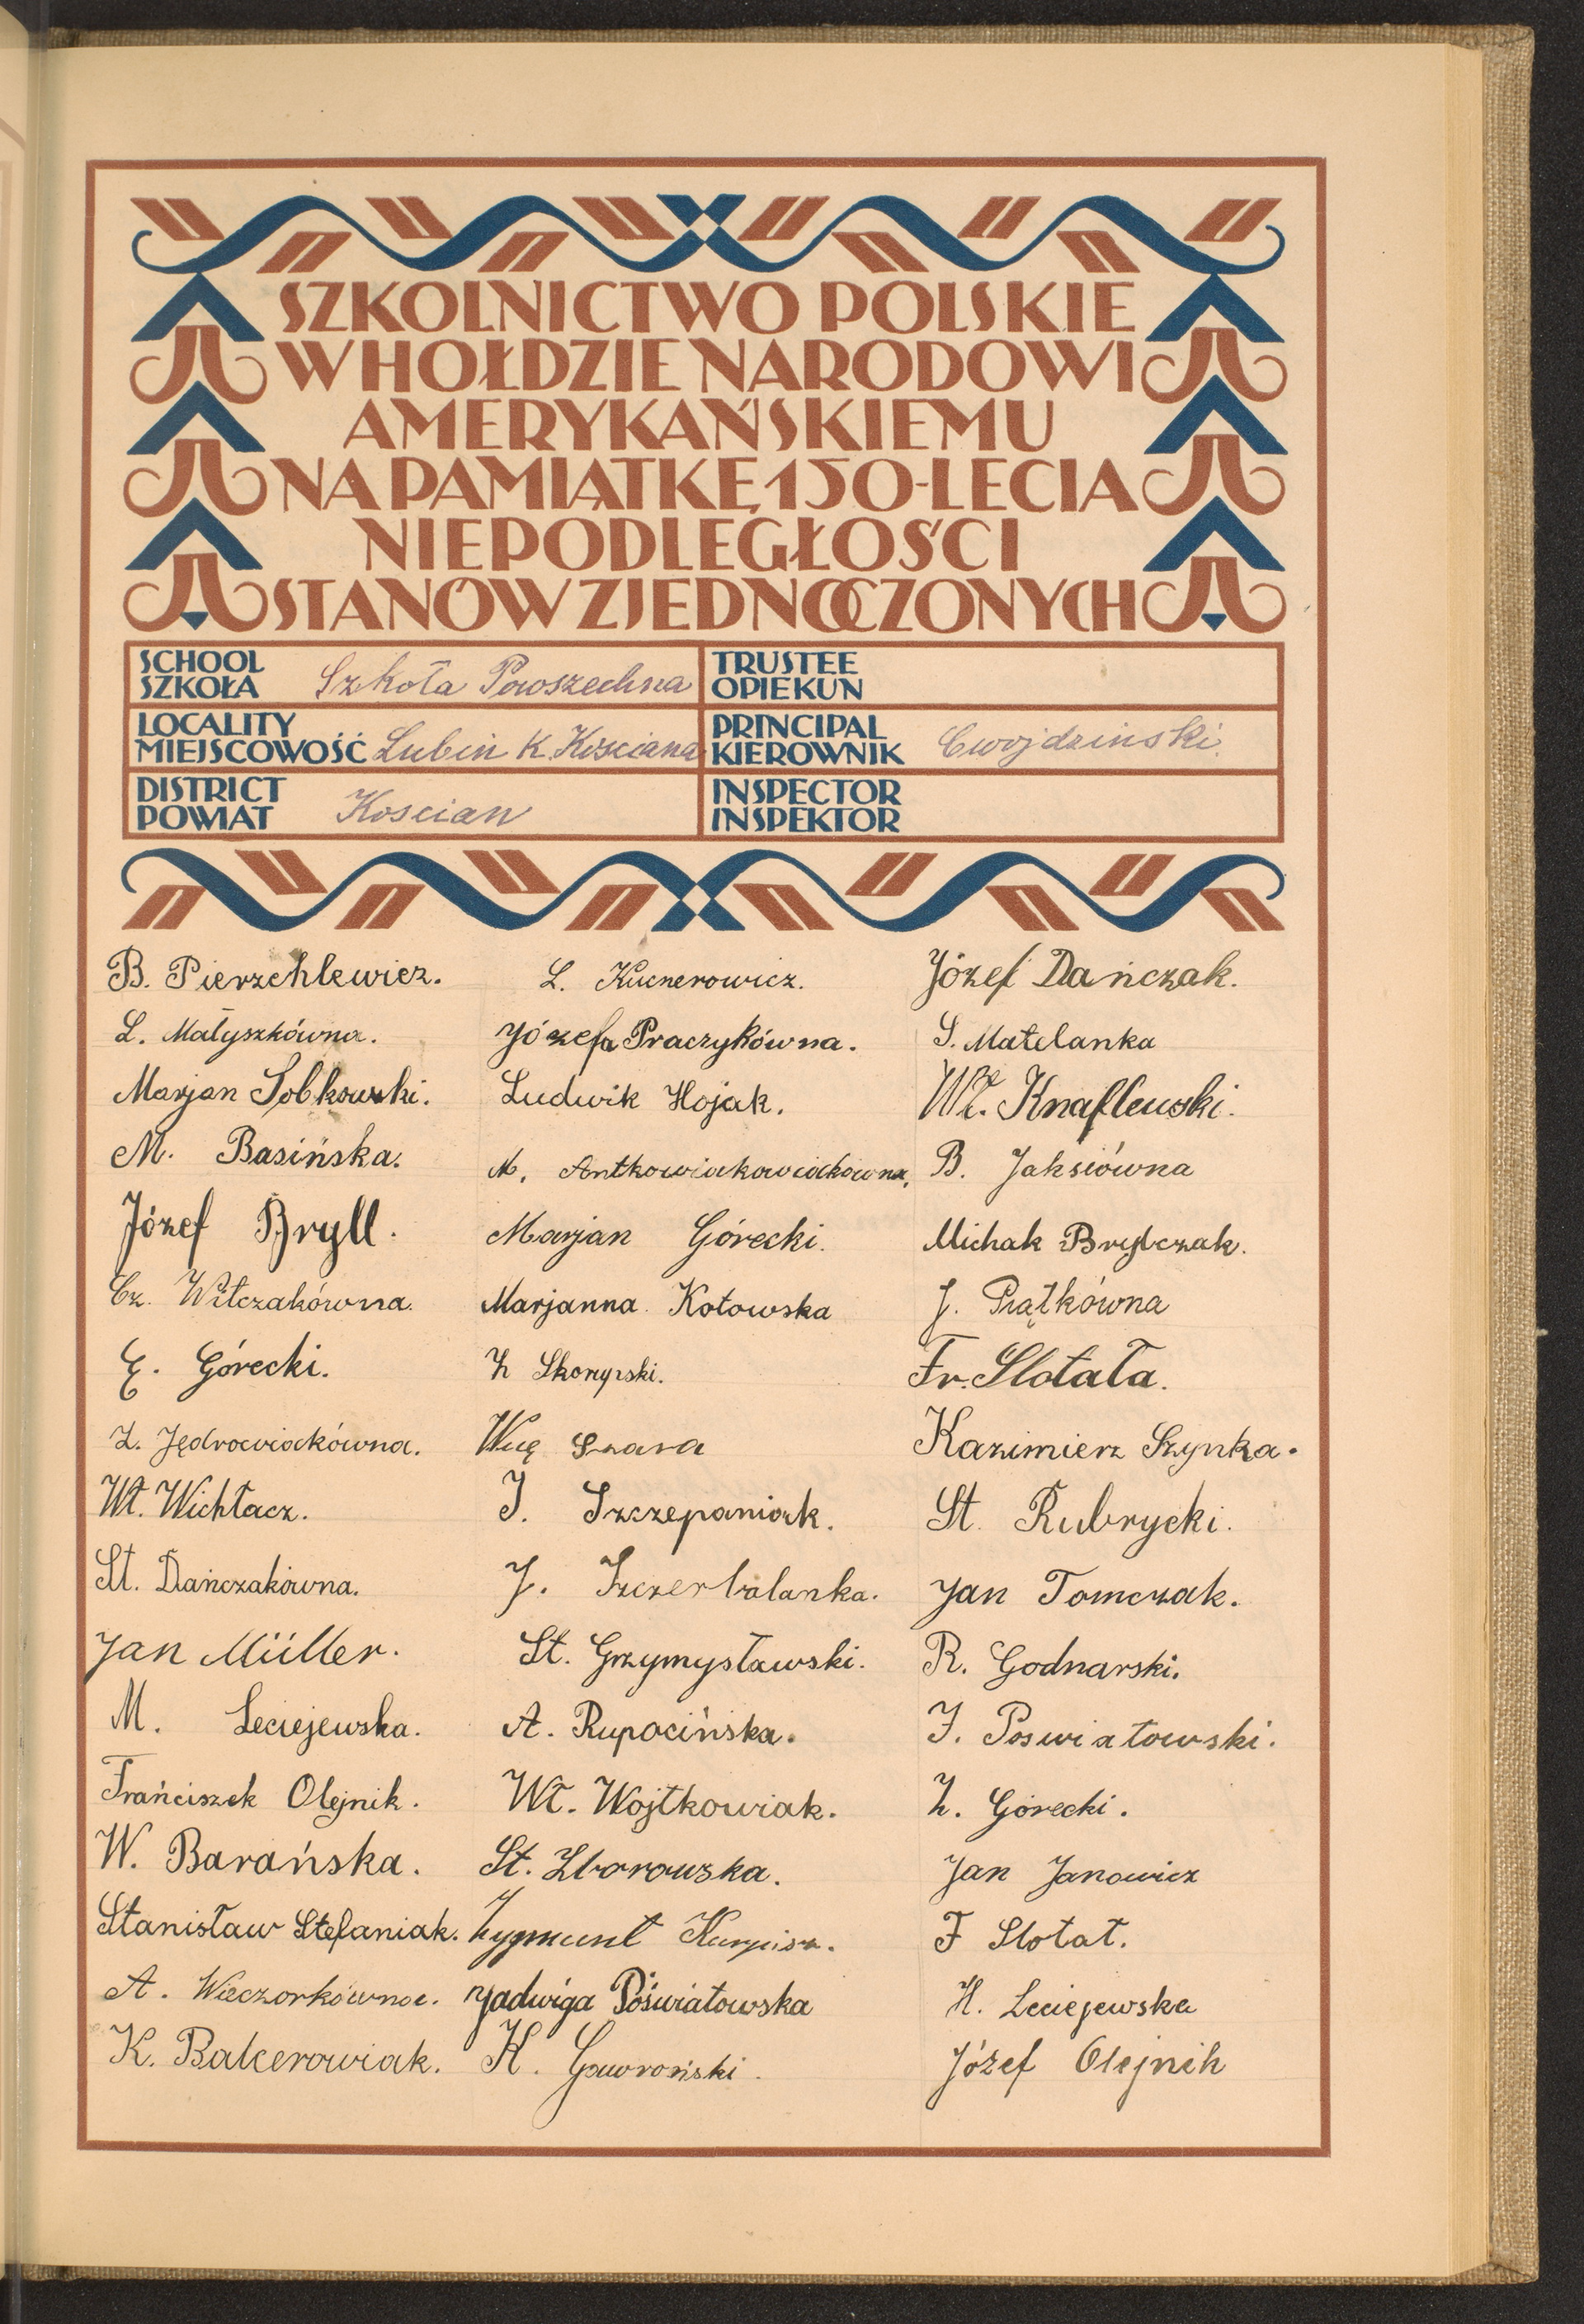 SZKOLNICTWO POLSKIE
W HOŁDZIE NARODOWI
AMERYKAŃSKIEMU
NA PAMIĄTKĘ 150-LECIA
NIEPODLEGŁOŚCI
STANÓW ZJEDNOCZONYCH
SCHOOL
SZKOŁA
Szkoła Powszechna
TRUSTEE
OPIEKUN
LOCALITY
MIEJSCOWOŚĆ
Lubiń k. Kościana
PRINCIPAL
KIEROWNIK
Cwojdzinski.
DISTRICT
POWIAT
Koscian
INSPECTOR
INSPEKTOR
B. Pierzchlewicz.
L. Małyszkówna.
Marjan Sobkowski.
M. Basińska.
Józef Bryll.
Cz. Witczakówna.
E. Górecki.
Z. Jędrowiakówna.
Wł. Wichłacz.
St. Dańczakówna.
Jan Müller.
M. Leciejewska.
Frańciszek Olejnik.
W. Barańska.
Stanisław Stefaniak.
A. Wieczorkówna.
K. Balcerowiak.
L. Kucnerowicz.
Józefa Praczykówna.
Ludwik Hojak.
M. Antkowiakowiakówna.
Marjan Górecki.
Marjanna Kotowska
Z Skorupski.
Szara
J. Szczepaniak.
J. Szczerbalanka.
St. Grzymysławski.
A. Rupocińska.
Wł. Wojtkowiak.
St. Zborowska.
Zygmunt
Jadwiga Pośwíatowska
K. Gawroński.
Józef Dańczak.
S. Matelanka
Wł. Knaflewski.
B. Jaksiówna
Michak Brybczak.
J. Piątkówna
Fr. Slotała.
Kazimierz Szynka.
St. Rubrycki.
Jan Tomczak.
R. Godnarski.
J. Poswiatowski.
Z. Górecki.
Jan Janowicz
F Slotat.
H. Leciejewska
Józef Olejnik